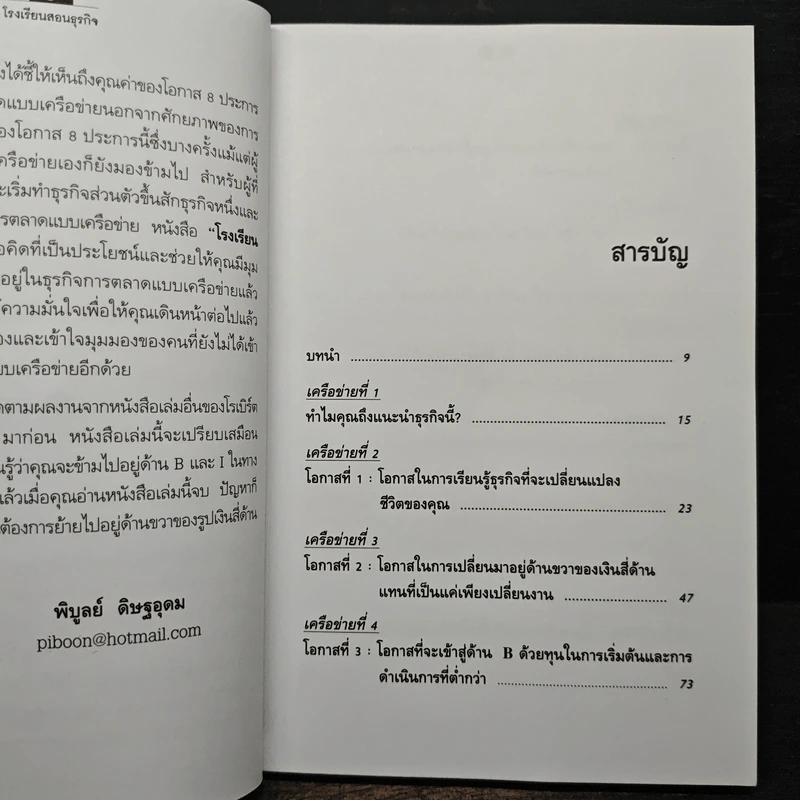 โรงเรียนสอนธุรกิจ
ได้ชี้ให้เห็นถึงคุณค่าของโอกาส 8 ประการ
แบบเครือข่ายนอกจากศักยภาพของการ
โอกาส 8 ประการนี้ซึ่งบางครั้งแม้แต่ผู้
ครือข่ายเองก็ยังมองข้ามไป สำหรับผู้ที่
เริ่มทำธุรกิจส่วนตัวขึ้นสักธุรกิจหนึ่งและ
รตลาดแบบเครือข่าย หนังสือ “โรงเรียน
คิดที่เป็นประโยชน์และช่วยให้คุณมีมุม
อยู่ในธุรกิจการตลาดแบบเครือข่ายแล้ว
ความมั่นใจเพื่อให้คุณเดินหน้าต่อไปแล้ว
องและเข้าใจมุมมองของคนที่ยังไม่ได้เข้า
บบเครือข่ายอีกด้วย
ตามผลงานจากหนังสือเล่มอื่นของโรเบิร์ต
มาก่อน หนังสือเล่มนี้จะเปรียบเสมือน
รู้ว่าคุณจะข้ามไปอยู่ด้าน B และ I ในทาง
แล้วเมื่อคุณอ่านหนังสือเล่มนี้จบ ปัญหาก็
ต้องการย้ายไปอยู่ด้านขวาของรูปเงินสี่ด้าน
พิบูลย์ ดิษฐอุดม
piboon@hotmail.com
สารบัญ
บทนำ ........ 9
เครือข่ายที่ 1
ทำไมคุณถึงแนะนำธุรกิจนี้? ........ 15
เครือข่ายที่ 2
โอกาสที่ 1 : โอกาสในการเรียนรู้ธุรกิจที่จะเปลี่ยนแปลง
ชีวิตของคุณ ........ 23
เครือข่ายที่ 3
โอกาสที่ 2 : โอกาสในการเปลี่ยนมาอยู่ด้านขวาของเงินสี่ด้าน
แทนที่เป็นแค่เพียงเปลี่ยนงาน ........ 47
เครือข่ายที่ 4
โอกาสที่ 3 : โอกาสที่จะเข้าสู่ด้าน B ด้วยทุนในการเริ่มต้นและการ
ดำเนินการที่ต่ำกว่า ........ 73